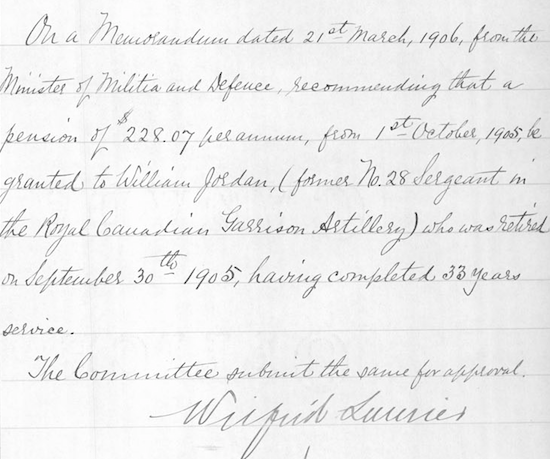 On a Memorandum dated 21st March, 1906, from the
Minister of Militia and Defence, recommending that a
pension of $228.07 per annum, from 1st October, 1905, be
granted to William Jordan, (former No. 28 Sergeant in
the Royal Canadian Garrison Artillery) who was retired
on September 30th 1905, having completed 33 years
service.
The Committee submit the same for approval.
Wilfrid Laurier